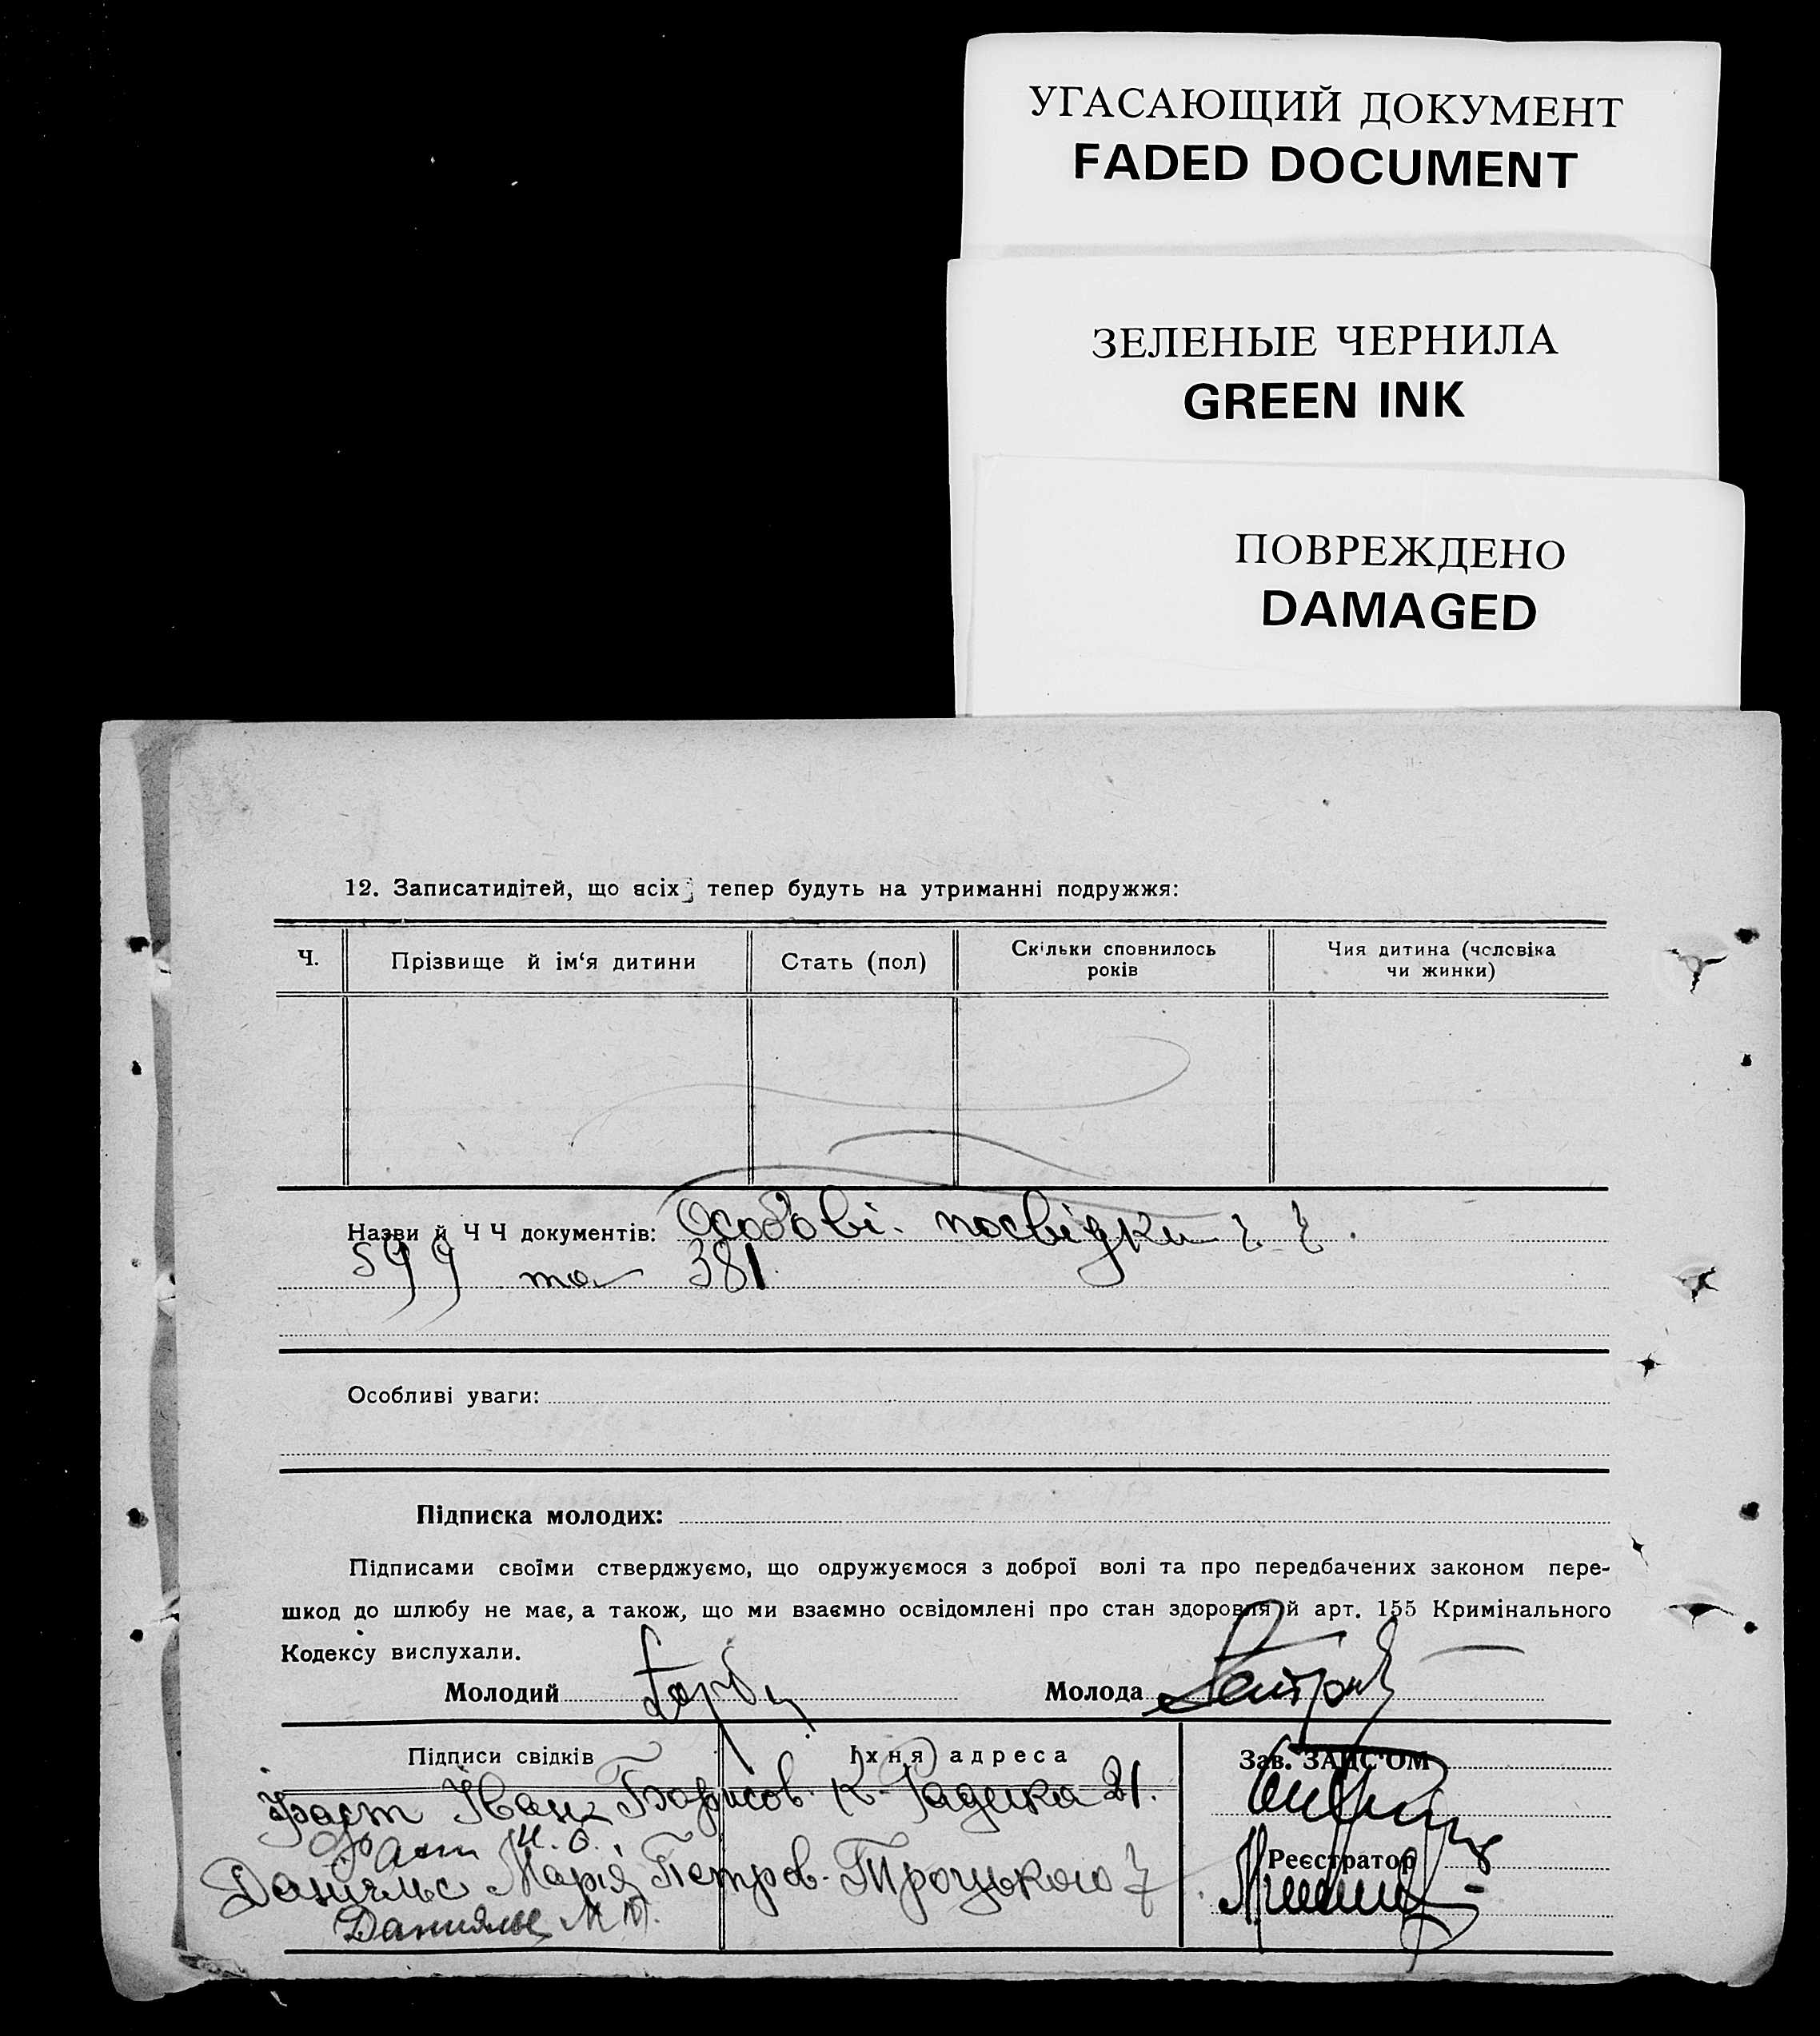 УГАСАЮЩИЙ ДОКУМЕНТ
FADED DOCUMENT
ЗЕЛЕНЫЕ ЧЕРНИЛА
GREEN INK
ПОВРЕЖДЕНО
DAMAGED
12. Записатидітей, що всіх тепер будуть на утриманні подружжя:
Ч.
Прізвище й ім‘я дитини
Стать (пол)
Скільки сповнилось
років
Чия дитина (чоловіка
чи жинки)
Назви й Ч Ч документів: Особові посвідки
599 та 381
Особливі уваги:
Підписка молодих:
Підписами своїми стверджуємо, що одружуємося з доброї волі та про передбачених законом пере-
шкод до шлюбу не має, а також, що ми взаємно освідомлені про стан здоровля й арт. 155 Кримінального
Кодексу вислухали.
Молодий
Молода
Підписи свідків
Їхня адреса
Зав. ЗАПС'ОМ
Фаст Іван Борисов. К. Радека 21.
Фаст И. Б.
Реєстратор
Даніельс Марія Петров. Троцького
Даниэльс М П.